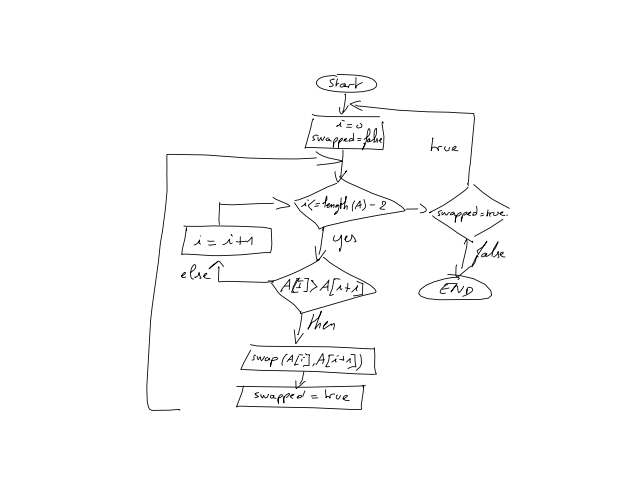 start
i = 0
swapped = false
true
i <= length (A) - 2
swapped = true.
yes
i = i + 1
false
else
A[I] > A[i+i]
END
then
swap (A[i], A[i+1])
swapped = true